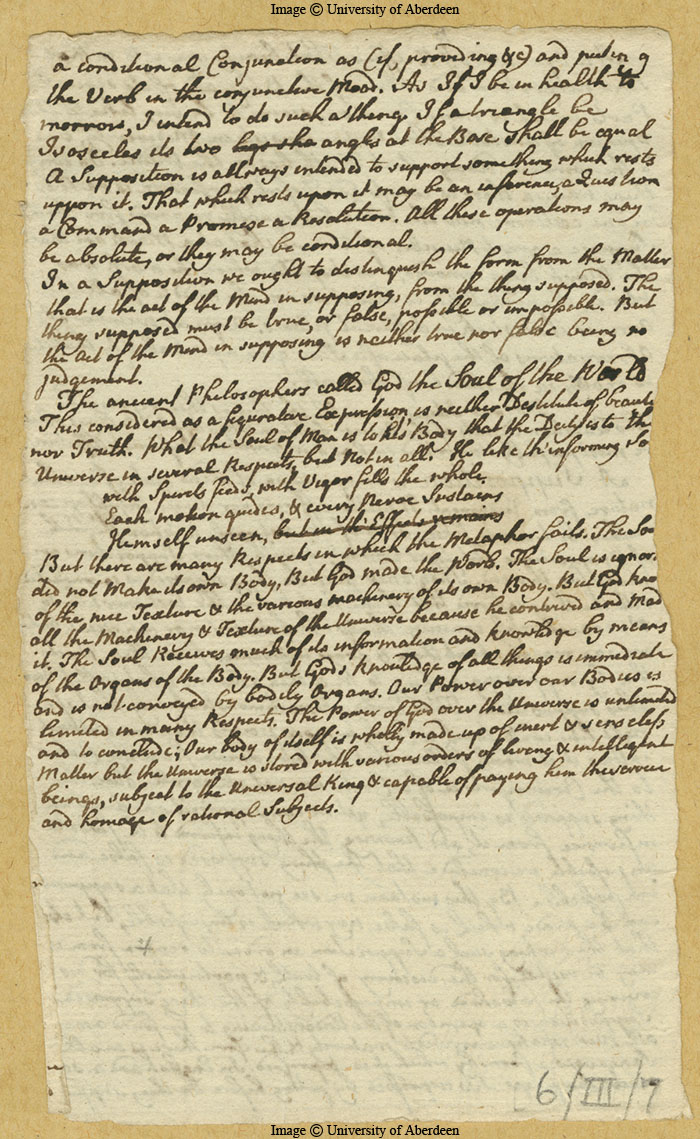 Image © University of Aberdeen
a conditional Conjunction as (if, providing &c) and puting
the Verb in the conjunctive Mood. As If I be in health to
morrow, I intend to do such a thing. If a triangle be
Isosceles its two legs the angles at the Base shall be equal
A Supposition is allways intended to support something which rests
uppon it. That which rests upon it may be an inference, a Question
a Command a Promise a Resolution. All these operations may
be absolute, or they may be conditional.
In a Supposition we ought to distinguish the form from the Matter
that is the act of the Mind in supposing, from the thing supposed. The
thing supposed must be true, or false, possible or impossible. But
the act of the Mind in supposing is neither true nor false being no
judgement.
The ancient Philosophers called God the Soul of the World
This considered as a figurative Expression, is neither Destitute of beauty
nor Truth. What the Soul of Man is to his Body that the Deity is to the
Universe in several Respects, but Not in all. He like th' informing So
with Spirits feeds, with Vigor fills the whole,
Each motion guides, & every Nerve Sustains
Himself unseen, but in th' Effects remains
But there are many Respects in which the Metaphor fails. The Sou
did not Make its own Body, But God made the World. The Soul is ignor.
of the nice Texture & the various machinery of its own Body. But God kno
all the Machinery & Texture of the Universe because he contrived and Mad
it. The Soul Receives much of its information and knowledge by means
of the Organs of the Body. But Gods knowledge of all things is immediate
and is not conveyed by bodily Organs. Our Power over our Bodies is
limited in many Respects. The Power of God over the Universe is unlimited
and to conclude; Our body of itself is wholly made up of inert & senseless
Matter but the Universe is stored with various orders of living & intelligent
beings, subject to the Universal King & capable of paying him the service
and homage of rational Subjects.
6/III/7
Image © University of Aberdeen